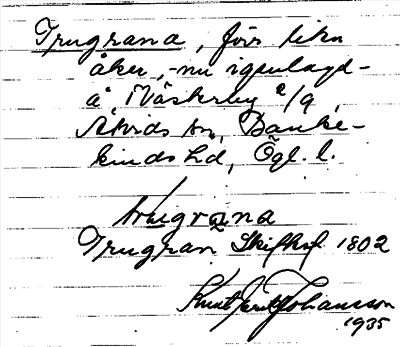 Trugrana, förr liten
åker, -nu igenlagd-
å Näskerby 2/9,
Åtvids sn, Banke-
kinds hd, Ögl. l.
trugrana
Trugran Skifhdl 1802
Knut Erik Johansson
1935